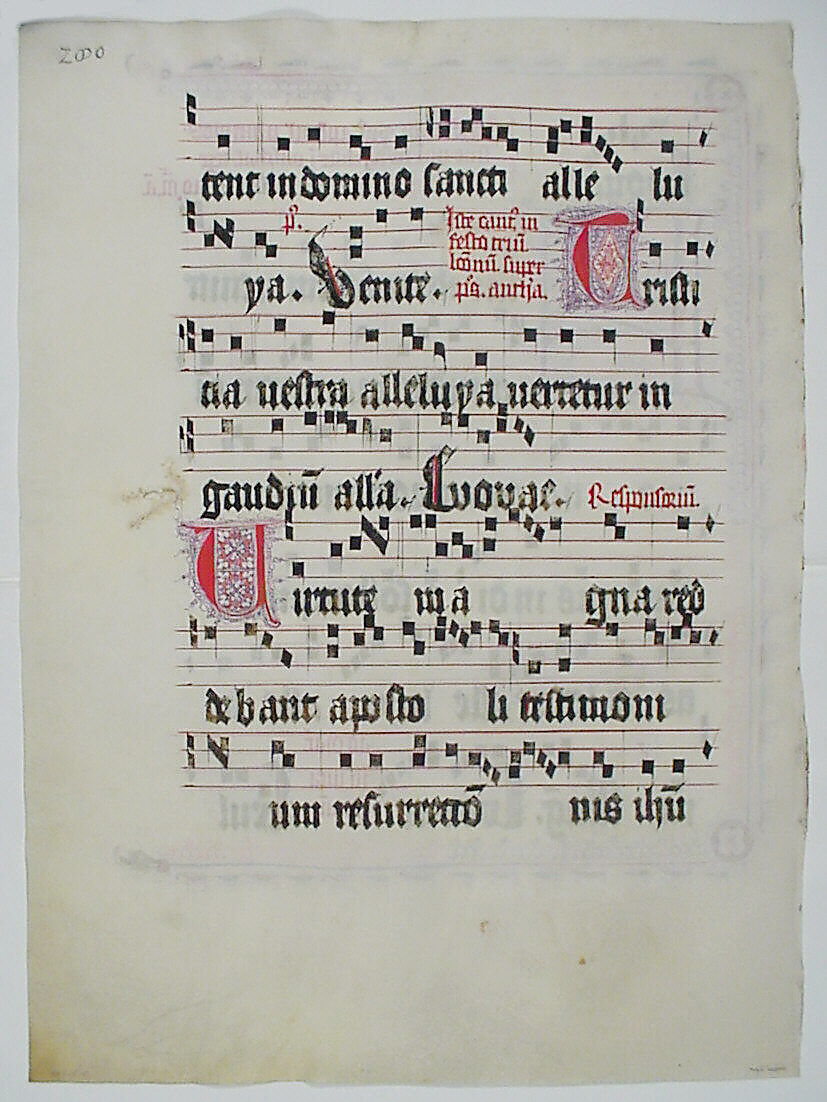 tent in domino sancti alle lu
ya. p̃. Venite.
Iste cant᷒ in
festo triũ
lcõnũ. super
p̃s. antha.
Tristi
cia uestra alleluya uertetur in
gaudiũ alla. Euouae. Responsoriũ.
Uirtute ma gna red
debant aposto li testimoni
um resurrectiõ nis ihũ